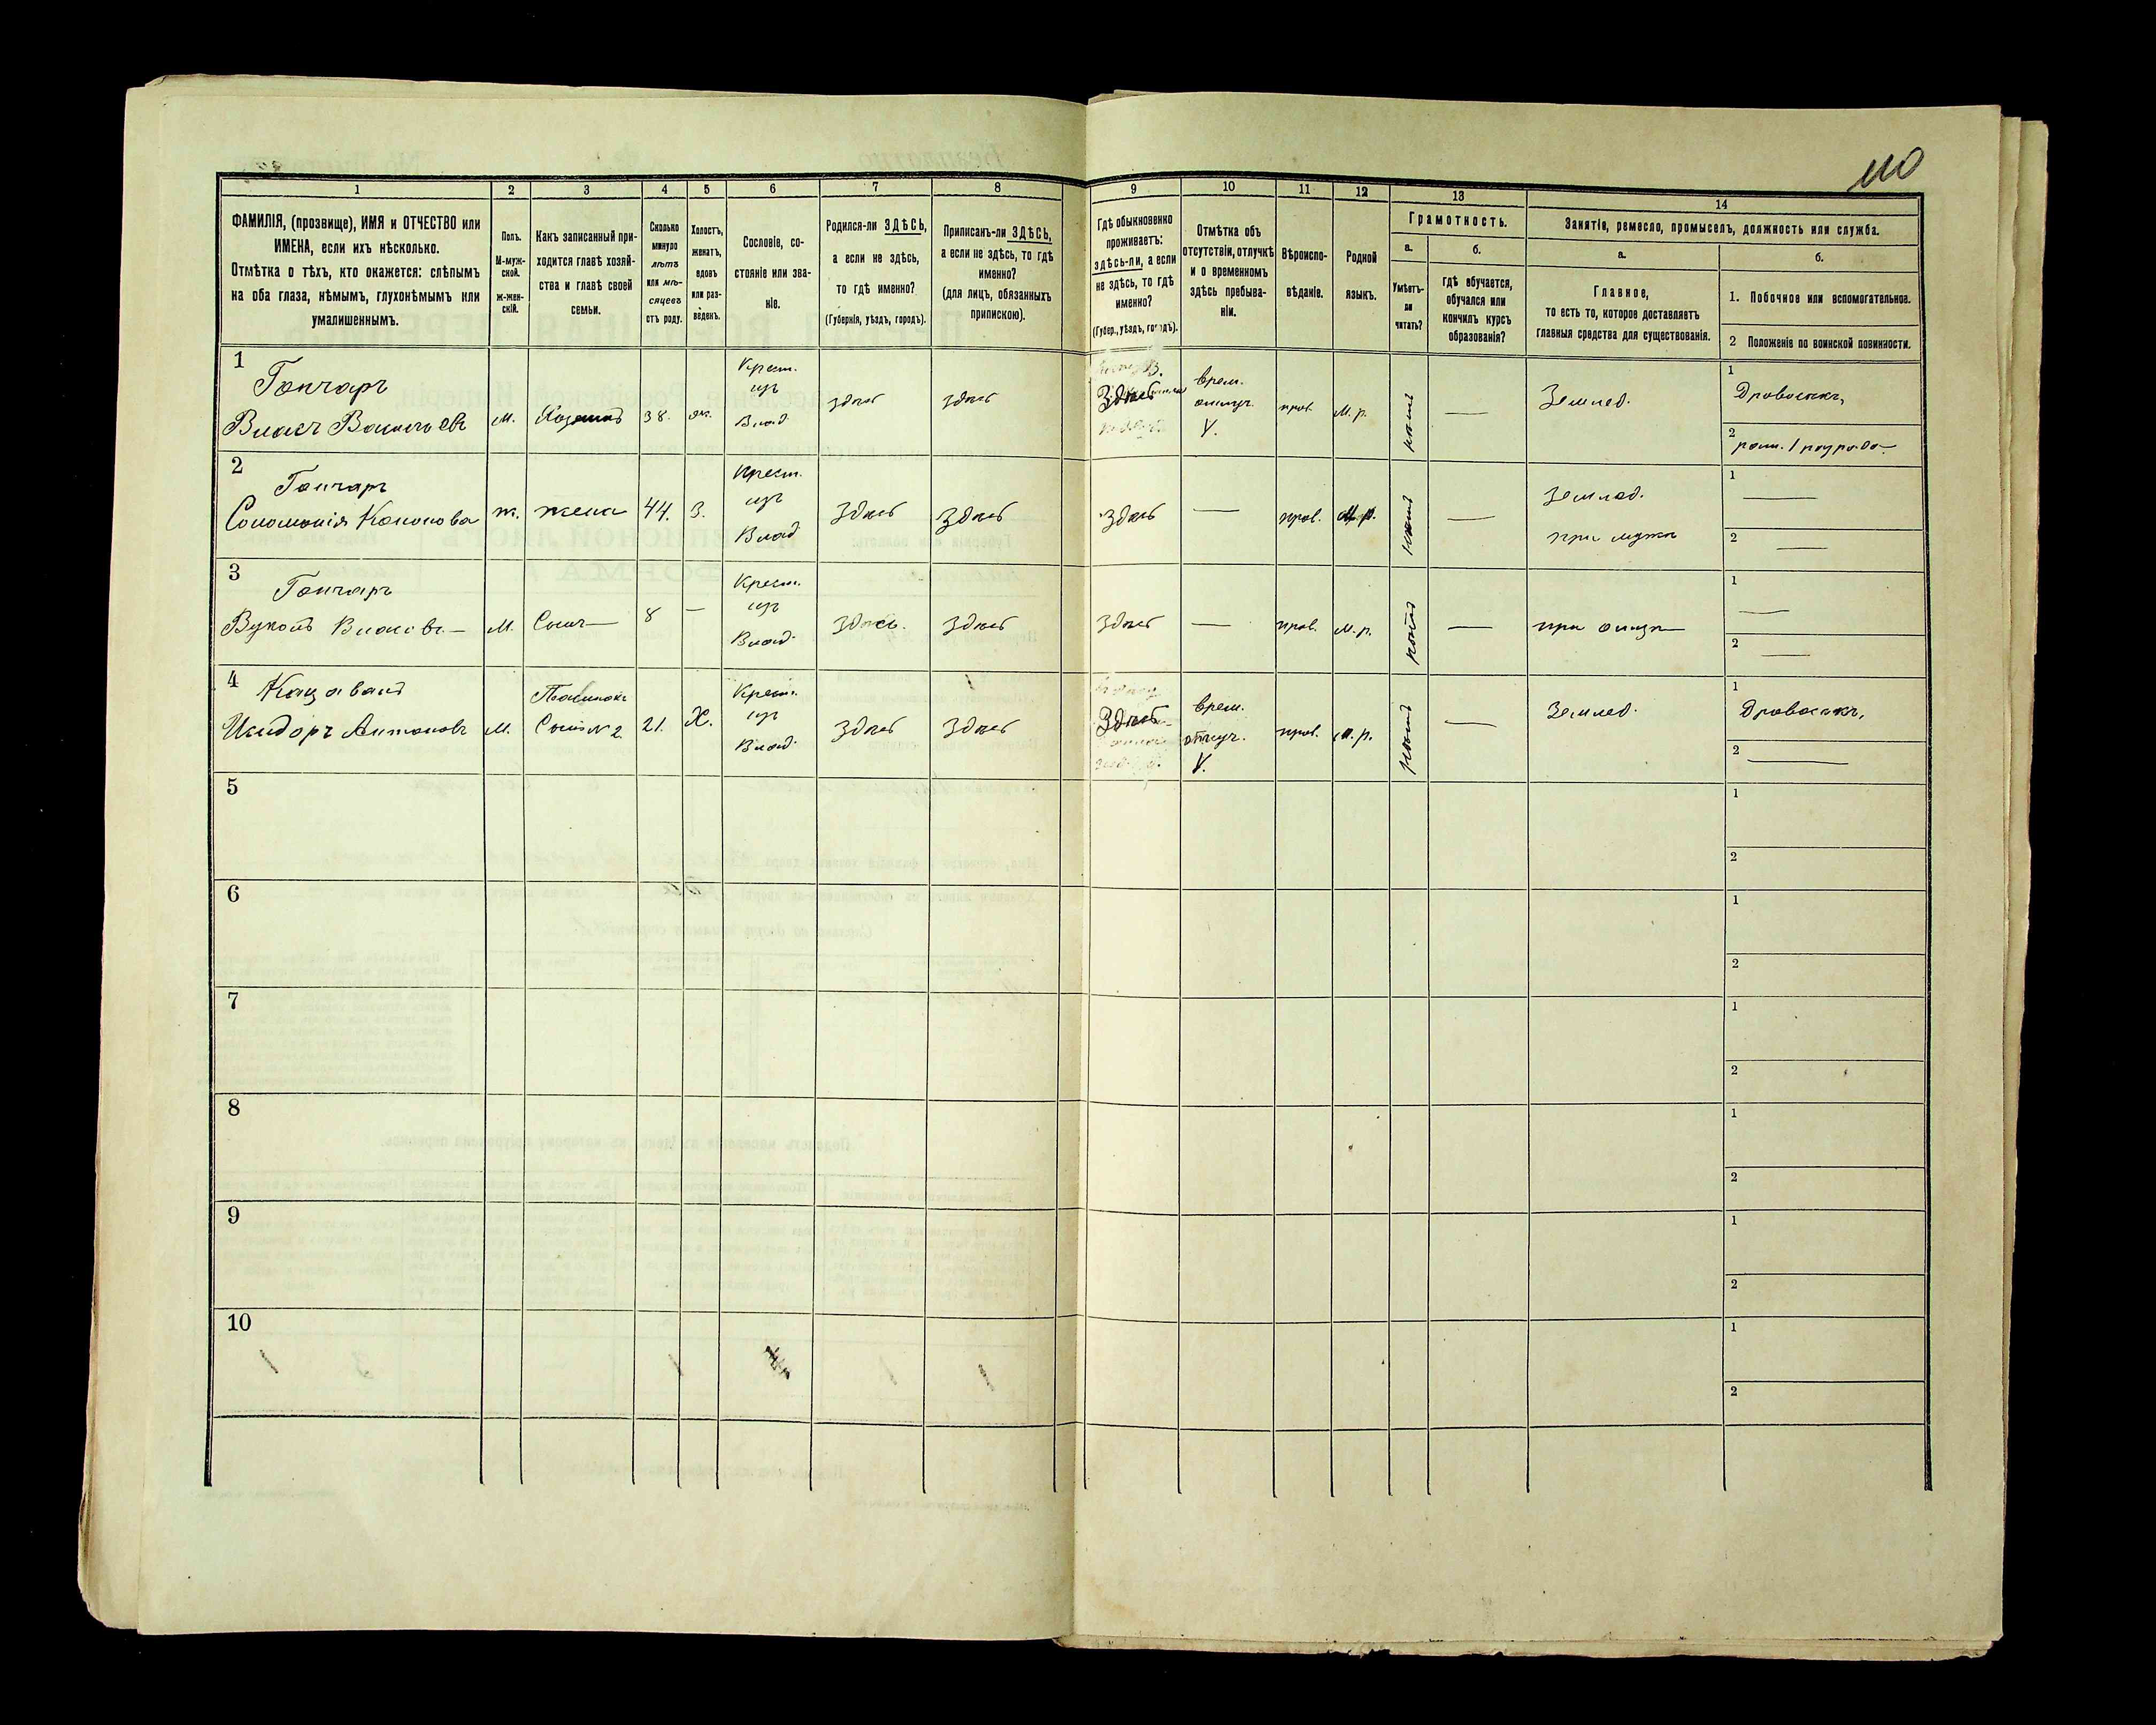 110
1 2 3 4 5 6 7 8 9 10 11 12 13 14
ФАМИЛІЯ, (прозвище), ИМЯ и ОТЧЕСТВО или
ИМЕНА, если ихъ нѣсколько.
Отмѣтка о тѣхъ, кто окажется: слѣпымъ
на оба глаза, нѣмымъ, глухонѣмымъ или
умалишеннымъ.
Полъ.
М-муж-
ской.
ж-жен-
скій.
Какъ записанный при-
ходится главѣ хозяй-
ства и главѣ своей
семьи.
Сколько
минуло
лѣтъ
или мѣ-
сяцевъ
отъ роду.
Холостъ,
женатъ,
вдовъ
или раз-
веденъ.
Сословіе, со-
стояніе или зва-
ніе.
Родился-ли ЗДѢСЬ,
а если не здѣсь,
то гдѣ именно?
(Губернія, уѣздъ, городъ).
Приписанъ-ли ЗДѢСЬ,
а если не здѣсь, то гдѣ
именно?
(для лицъ, обязанныхъ
припискою).
Гдѣ обыкновенно
проживаетъ:
здѣсь-ли, а если
не здѣсь, то гдѣ
именно?
(Губер., уѣздъ, городъ).
Отмѣтка объ
отсутствіи, отлучкѣ
и о временномъ
здѣсь пребыва-
ніи.
Вѣроиспо-
вѣданіе.
Родной
языкъ.
Грамотность.
а.
Умѣетъ-
ли
читать?
б.
гдѣ обучается,
обучался или
кончилъ курсъ
образованія?
Занятіе, ремесло, промыселъ, должность или служба.
а.
Главное,
то есть то, которое доставляетъ
главныя средства для существованія.
б.
1. Побочное или вспомогательное.
2 Положеніе по воинской повинности.
1
Гончаръ
Власъ м. Хозяинъ 38. ж.
Крест.
изъ
Влад.
здѣсь здѣсь Здѣсь
врем.
отлуч.
V.
прав. М. р. нѣтъ — Землед.
1
Дровосекъ,
2
2
Гончаръ
Соломонія Кононова ж. жена 44. З.
Крест.
изъ
Влад
Здѣсь Здѣсь Здѣсь — прав. М. р. нѣтъ —
Землед.
при мужѣ
1 —
2 —
3
Гончаръ
Вуколъ Власовъ — М. Сынъ — 8 —
Крест.
изъ
Влад.
Здѣсь. Здѣсь Здѣсь — прав. М. р. нѣтъ — при отцѣ
1 —
2 —
4
Исидоръ Антоновъ М.
Пасынокъ
Сынъ N 2 21. Х.
Крест.
изъ
Влад.
Здѣсь Здѣсь Здѣсь
врем.
отлуч.
V.
прав. М. р. нѣтъ — Землед.
1
Дровосекъ,
2 —
5
1
2
6
1
2
7
1
2
8
1
2
9
1
2
10
1
2